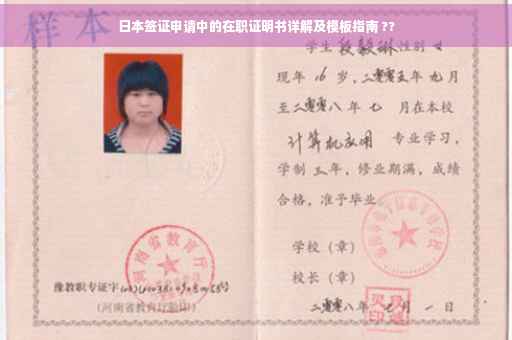 日本签证申请中的在职证明书详解及模板指南 ??
样本
学生 段毅琳 性别 女
现年 16 岁,二零零五年 九 月
至二零零八年 七 月在本校
计算机应用 专业学习,
学制 三 年,修业期满,成绩
合格,准予毕业
学校(章)
校长(章)
二零零八年 七 月 一 日
河南省教育厅
豫教职专证字
(河南省教育厅验印)